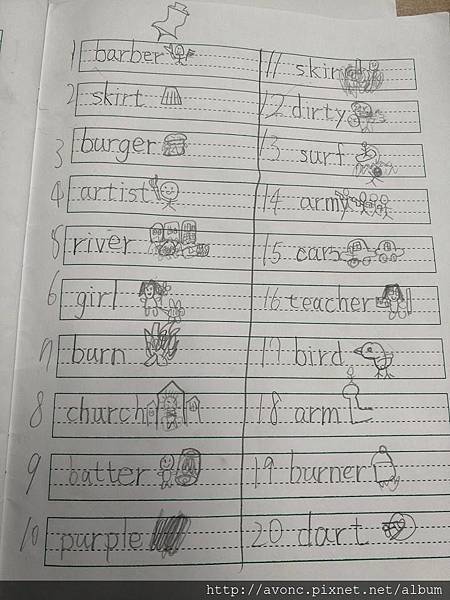 1 barber
2 skirt
3 burger
4 artist
5 river
6 girl
7 burn
8 church
9 batter
10 purple
11 skirt
12 dirty
13 surf
14 army
15 cars
16 teacher
17 bird
18 arm
19 burner
20 dart
http://avonc.pixnet.net/album